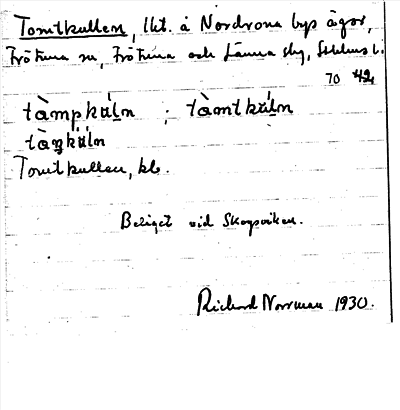 Tomtkullen, lkt. å Nordrona bys ägor,
Frötuna sn, Frötuna och Länna sky, Sthlms l.
70 42
tàmpkúln ; tàmtkúln
tàŋkúln
Tomtkullen, kb.
Beläget vid Skogsviken.
Richard Norrman 1930.